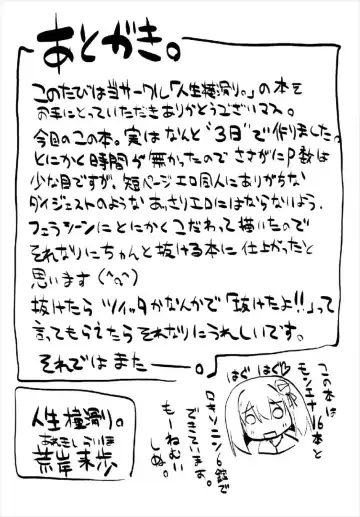 あとがき。
このたびは当サークル「人生横滑り。」の本を
お手にとっていただきありがとうございマス。
今回のこの本。実はなんと“3日”で作りました。
とにかく時間が無かったので ささがにP数は
少な目ですが、短ページエロ同人にありがちな
ダイジェストのような あっさりエロにはならないよう、
フェラシーンにとにかくこだわって描いたので
それなりにちゃんと抜ける本に仕上がったと
思います(^o^)
抜けたら ツイッタかなんかで「抜けたよ!!」って
言ってもらえたら それなりにうれしいです。
それではまた――。
この本は
モンエナ16本と
ロキソニン6錠で
できています。
もーねむい
しぬ。
はぐ はぐ♡
人生横滑り。
あれきし らいほ
荒岸来歩